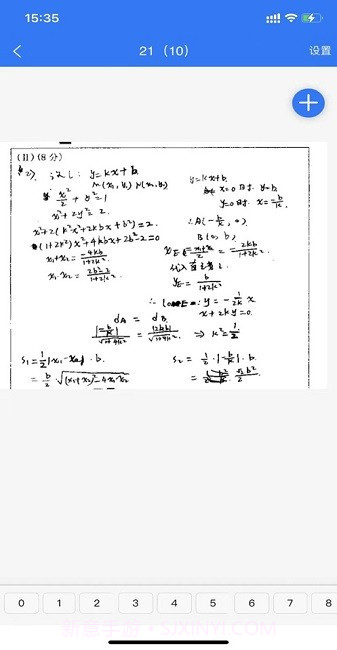 15:35
21（10）
设置
(II) (8分)
(2) 设 l: y=kx+b
M(x₁, y₁) N(x₂, y₂)
x²/2 + y² = 1
x²+2y²=2
x²+2(k²x²+2kbx+b²)=2
(1+2k²)x²+4kbx+2b²-2=0
x₁+x₂ = -4kb/1+2k²
x₁·x₂ = 2b²-2/1+2k²
y=kx+b
x=0时 y=b
y=0时 x=-b/k
∴A(-b/k, 0)
B(0, b)
x_E = x₁+x₂/2 = -2kb/1+2k²
代入直线 l
y_E = b/1+2k²
∴ l_OE: y=-1/2k x
x+2ky=0
d_A = d_B
|-b/k|/√1+4k² = |2bk|/√1+4k² ⇒ k²=1/2
S₁=1/2|x₁-x₂|·b
= b/2 · √(x₁+x₂)²-4x₁x₂
S₂ = 1/2·|-b/k|·b
= √2b²/2
0 1 2 3 4 5 6 7 8
新意手游·SJXINYI.COM